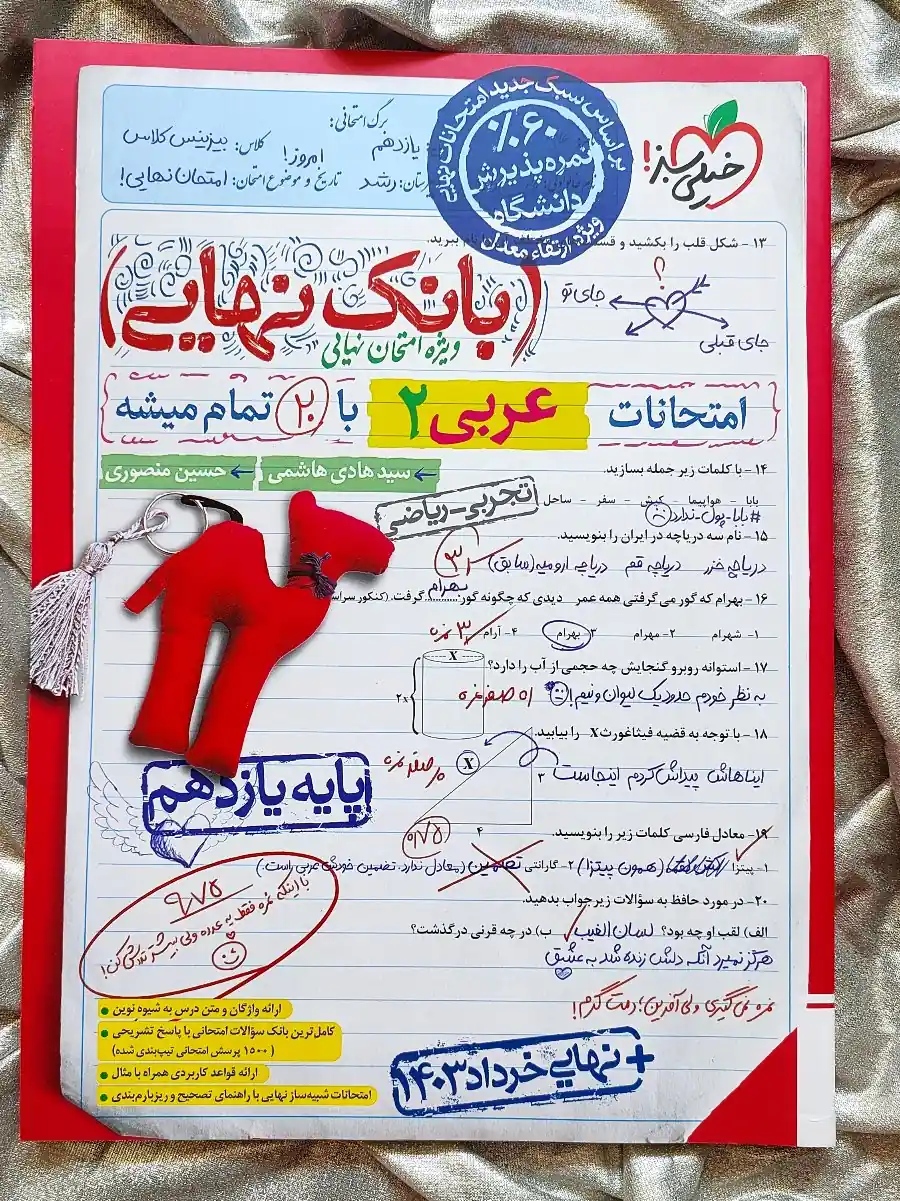 براساس سبک جدید امتحانات نهایی
۶۰٪
نمره پذیرش
دانشگاه
ویژه ارتقاء معدل
خیلی سبز!
برگ امتحانی:
یازدهم
کلاس: بیزینس کلاس
رشد
تاریخ و موضوع امتحان: امروز! امتحان نهایی!
۱۳- شکل قلب را بکشید و
نام ببرید.
؟
جای تو
جای قبلی
(بانک نهایی)
ویژه امتحان نهایی
امتحانات عربی ۲ با ۲۰ تمام میشه
سید هادی هاشمی
حسین منصوری
تجربی-ریاضی
۱۴- با کلمات زیر جمله بسازید.
بابا - هواپیما - کیش - سفر - ساحل
#بابا-پول-ندارد
۱۵- نام سه دریاچه در ایران را بنویسید.
دریاچه خزر دریاچه قم دریاچه ارومیه (سابق)
۱۶- بهرام که گور می‌گرفتی همه عمر دیدی که چگونه گور بهرام گرفت. (کنکور
۱- شهرام ۲- مهرام ۳- بهرام ۴- آرام
۳ نمره
۱۷- استوانه روبرو گنجایش چه حجمی از آب را دارد؟
X
۲x
به نظر خودم حدود یک لیوان و نیم!
صفر نمره
۱۸- با توجه به قضیه فیثاغورث X را بیابید.
ایناهاش پیداش کردم اینجاست
X
۳
۴
صفر نمره
۰/۷۵
پایه یازدهم
۱۹- معادل فارسی کلمات زیر را بنویسید.
۱- پیتزا (همون پیتزا) ۲- گارانتی تضمین (معادل ندارد. تضمین خودش عربی است.)
۲۰- در مورد حافظ به سؤالات زیر جواب بدهید.
الف) لقب او چه بود؟ لسان الغیب ب) در چه قرنی درگذشت؟
هرگز نمیرد آنکه دلش زنده شد به عشق
نمره نمی‌گیری ولی آفرین؛ دمت گرم!
۹/۷۵
با اینکه نمره فقط یه عدده ولی بیشتر تلاش کن!
ارائه واژگان و متن درس به شیوه نوین
کامل‌ترین بانک سؤالات امتحانی با پاسخ تشریحی
(۱۵۰۰ پرسش امتحانی تیپ‌بندی شده)
ارائه قواعد کاربردی همراه با مثال
امتحانات شبیه‌ساز نهایی با راهنمای تصحیح و ریزبارم‌بندی
+ نهایی خرداد ۱۴۰۳